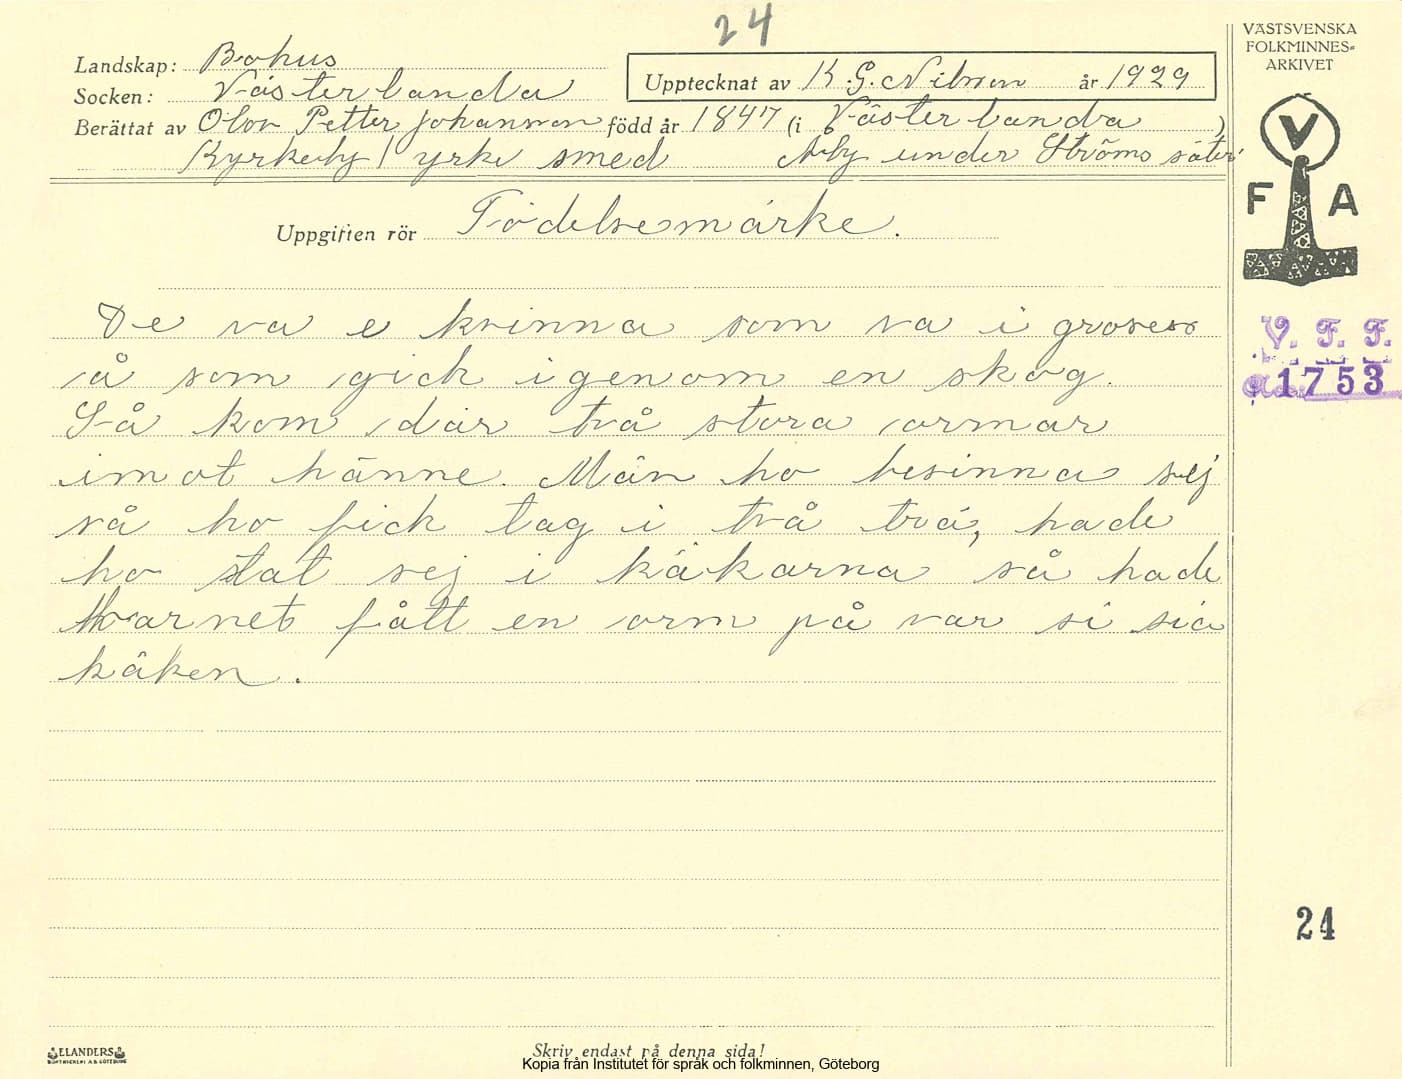 24
VÄSTSVENSKA
FOLKMINNES=
ARKIVET
Landskap: Bohus
Socken: Västerlanda
Upptecknat av K.G. Nilsson år 1929
Berättat av Olov Petter Johansson född år 1847 (i Västerlanda )
Kyrkeby / yrke smed Åby under Ströms säteri
V
F A
Uppgiften rör Födelsemärke.
De va e kvinna som va i grosess
å som gick igenom en skog.
Så kom där två stora ormar
imot hänne. Män ho besinna sej
så ho fick tag i två trä, hade
ho tat sej i käkarna så hade
barnet fått en orm på var si sia
käken.
V. F. F.
1753
24
ELANDERS
BOKTRYCKERI A.B. GÖTEBORG
Skriv endast på denna sida!
Kopia från Institutet för språk och folkminnen, Göteborg